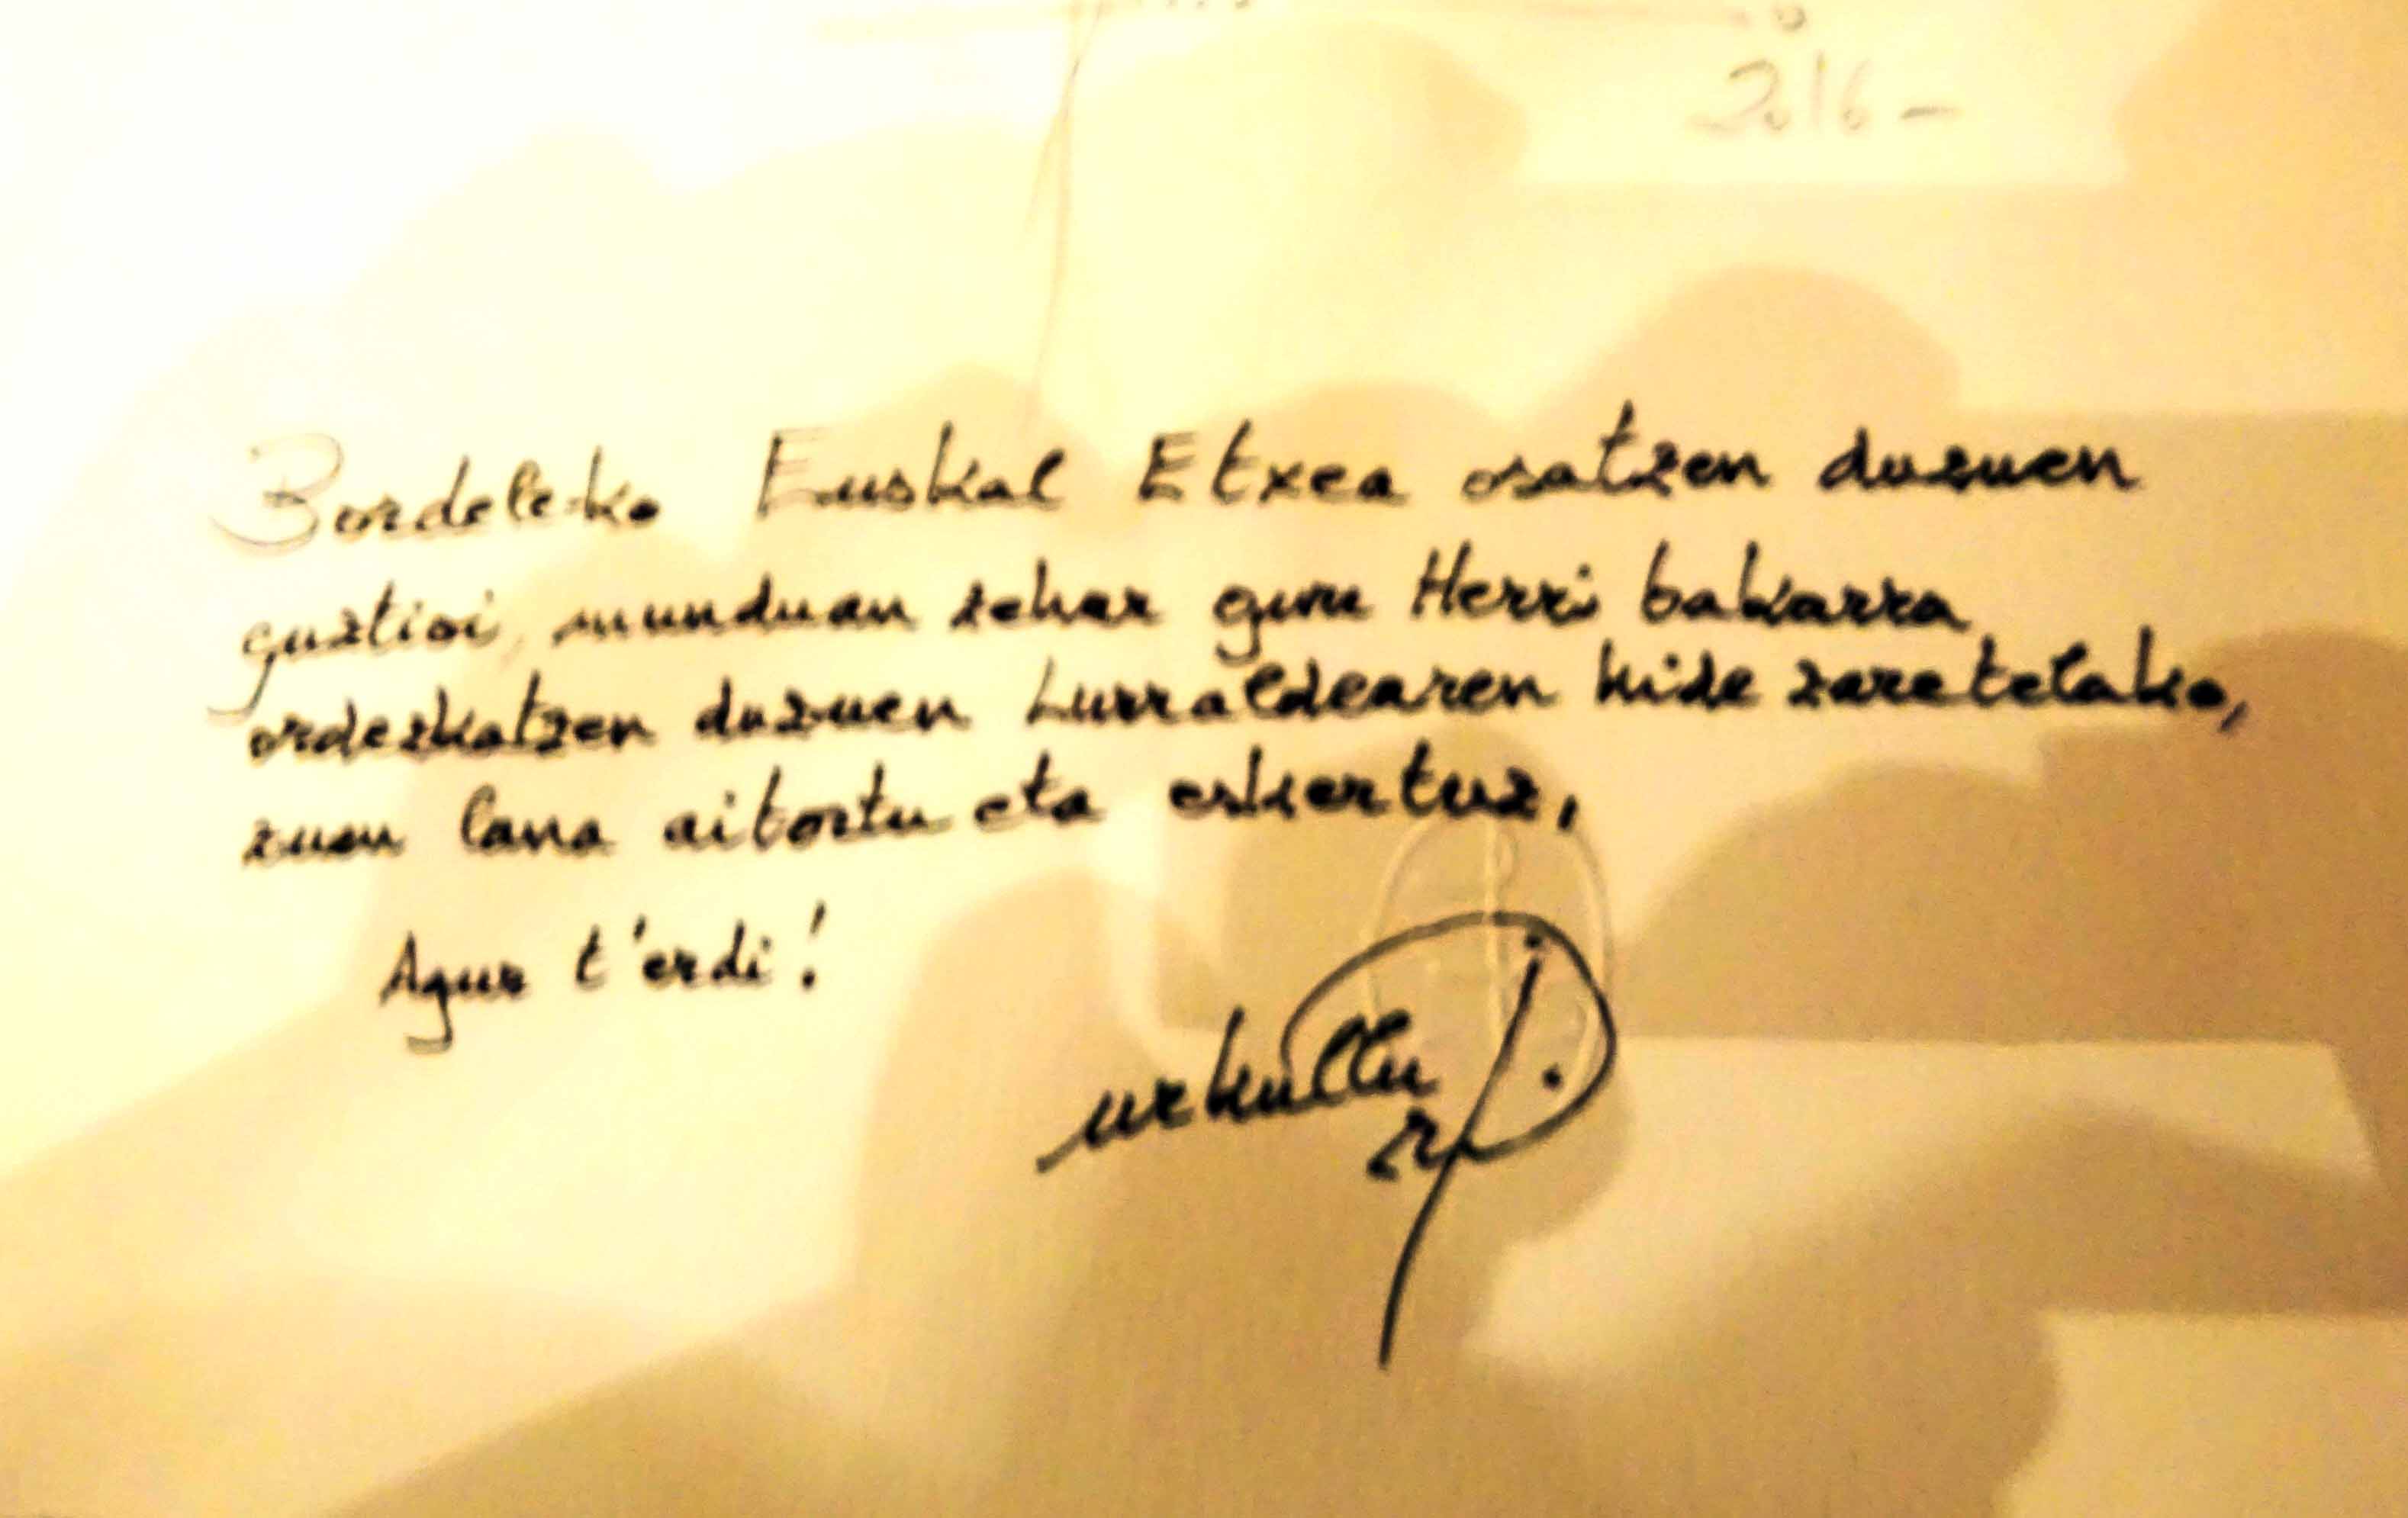 2016 -
Bordeleko Euskal Etxea osatzen duzuen
guztioi, munduan zehar gure Herri bakarra
ordezkatzen duzuen Lurraldearen kide zaretelako,
zuen lana aitortu eta eskertuz,
Agur t'erdi!
urkullu